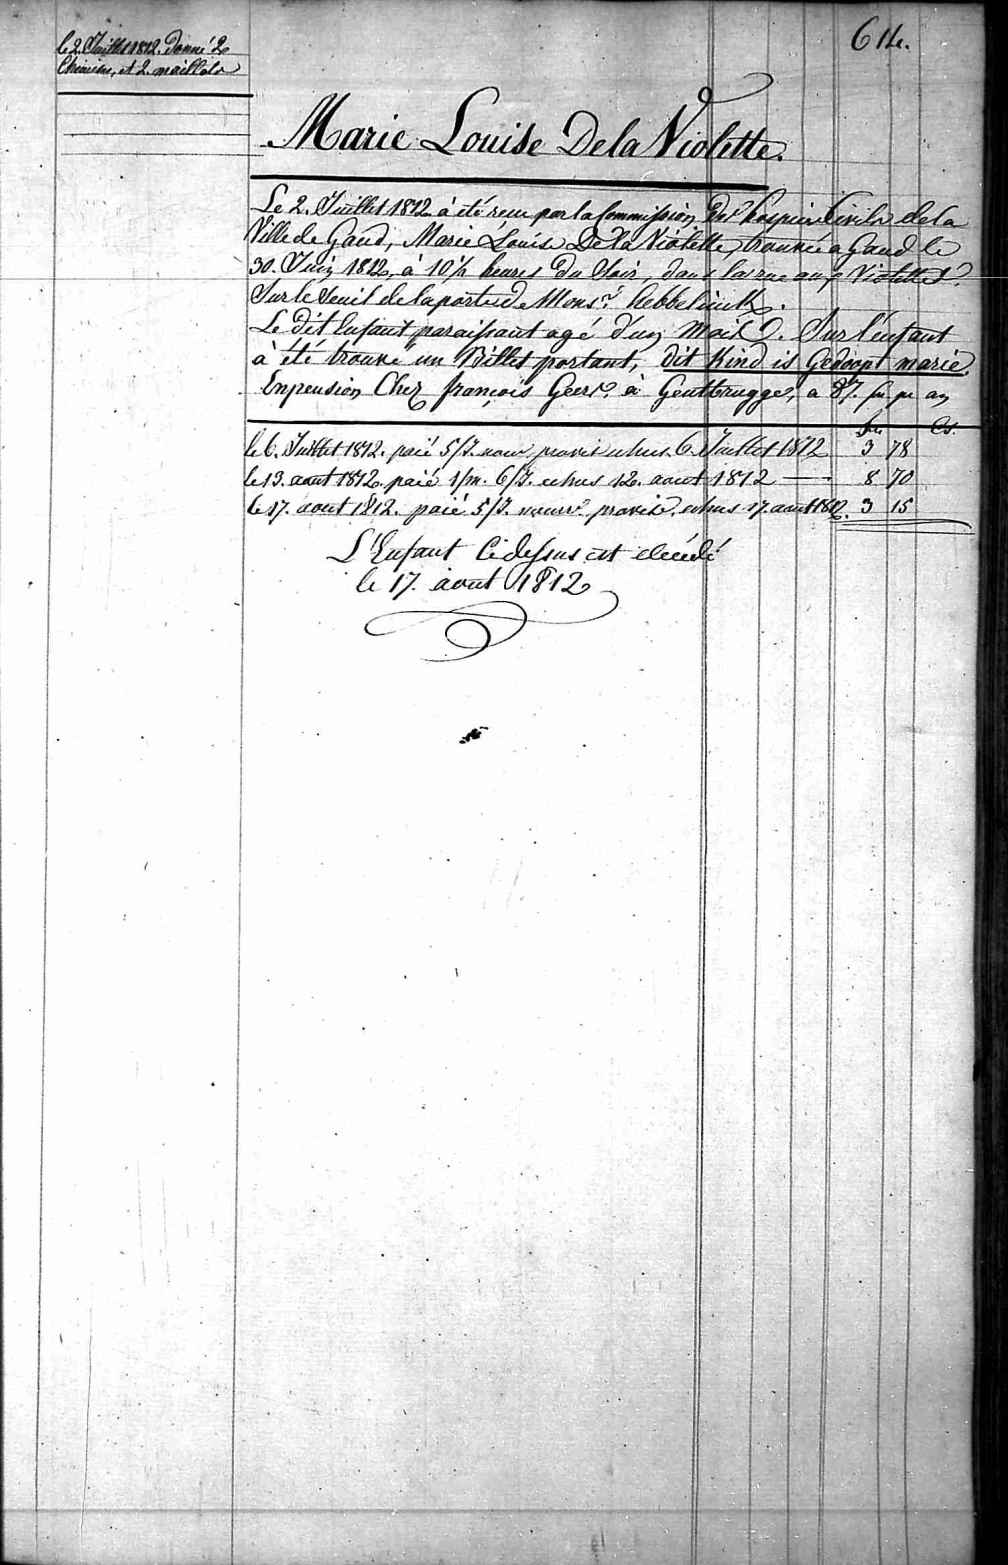 614.
le 2. Juillet 1812. donné 2
Chemises, et 2. maillots
Marie Louise De la Violette.
Le 2. Juillet 1812 à été recu par la Commission des hospices Civils de la
Ville de Gand, Marie Louise De la Violette, trouvée a Gand le
30. Juin 1812, à 10½ heures du Soir, dans la rue aux Violettes
Sur le Seuil de la porte de Monsr. hebbelinck.
Le dit Enfant paraissant agé d'un mois. Sur l'enfant
à été trouve un Billet portant, dit Kind is Gedoopt marie
En pension Chez françois Geers, à Gentbrugge, a 87. fr pr an
fr. Cs.
le 6. Juillet 1812. paié 5/J. nour provis echus 6. Juillet 1812 3 78
le 13. aout 1812. paié 1/m. 6/J. echus 12. aout 1812 — 8 70
le 17. aout 1812. paié 5/J. nourr. provis. echus 17. aout 1812. 3 15
L'Enfant Cidessus est décédé
le 17. aout 1812